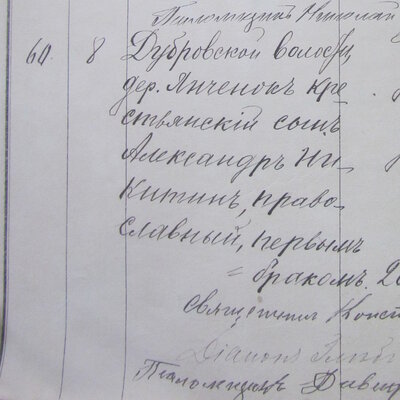 Псаломщикъ Николай
60. 8 Дубровской волости
дер. Янченокъ кре-
стьянскій сынъ
Александръ Ни-
китинъ, право-
славный, первымъ
бракомъ.
Священник Конст
Діаконъ
Псаломщикъ Давид